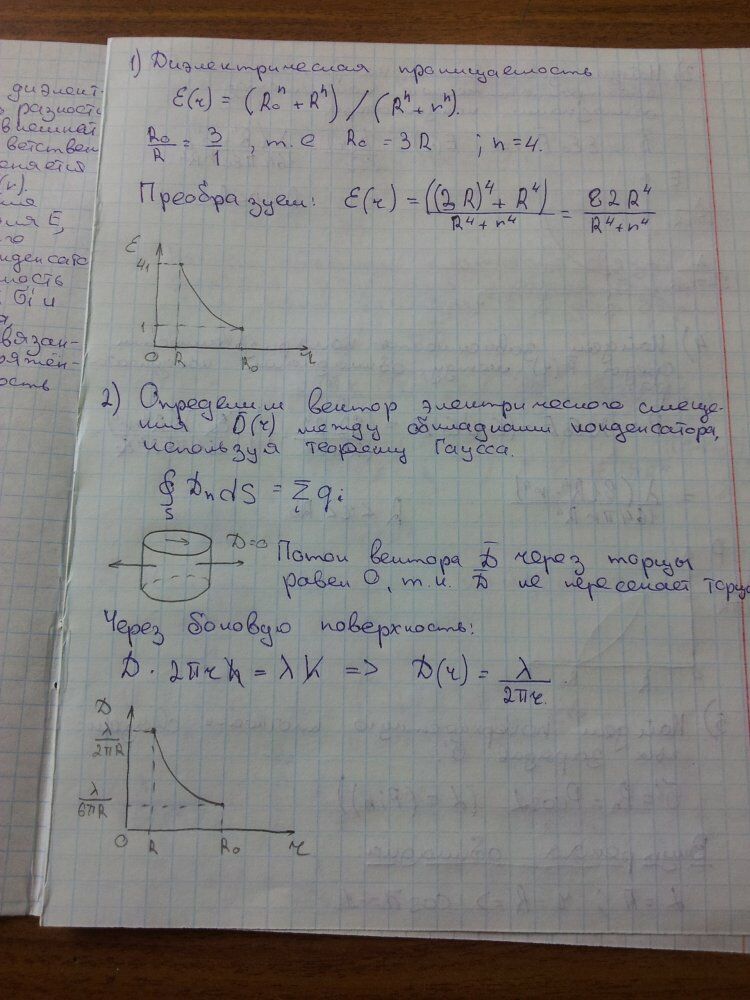 диэлект-
разность
внешнат
ветствен
еняется
(r).
ля Е,
го
нденсато
мость
вязан-
ряжён-
ность
1) Диэлектрическая проницаемость
ε(r) = (R₀ⁿ + Rⁿ) / (Rⁿ + rⁿ).
R₀/R = 3/1, т.е R₀ = 3R ; n = 4.
Преобразуем: ε(r) = ((3R)⁴ + R⁴) / (R⁴ + r⁴) = 82R⁴ / (R⁴ + r⁴)
ε
41
1
0 R R₀ r
2) Определим вектор электрического смеще-
ния D̄(r) между обкладками конденсатора,
используя теорему Гаусса.
∮ₛ DₙdS = Σᵢ qᵢ
D=0 Поток вектора D̄ через торцы
равен 0, т.к. D̄ не пересекает торцы
Через боковую поверхность:
D · 2πrh = λh => D(r) = λ / 2πr.
D
λ/2πR
λ/6πR
0 R R₀ r